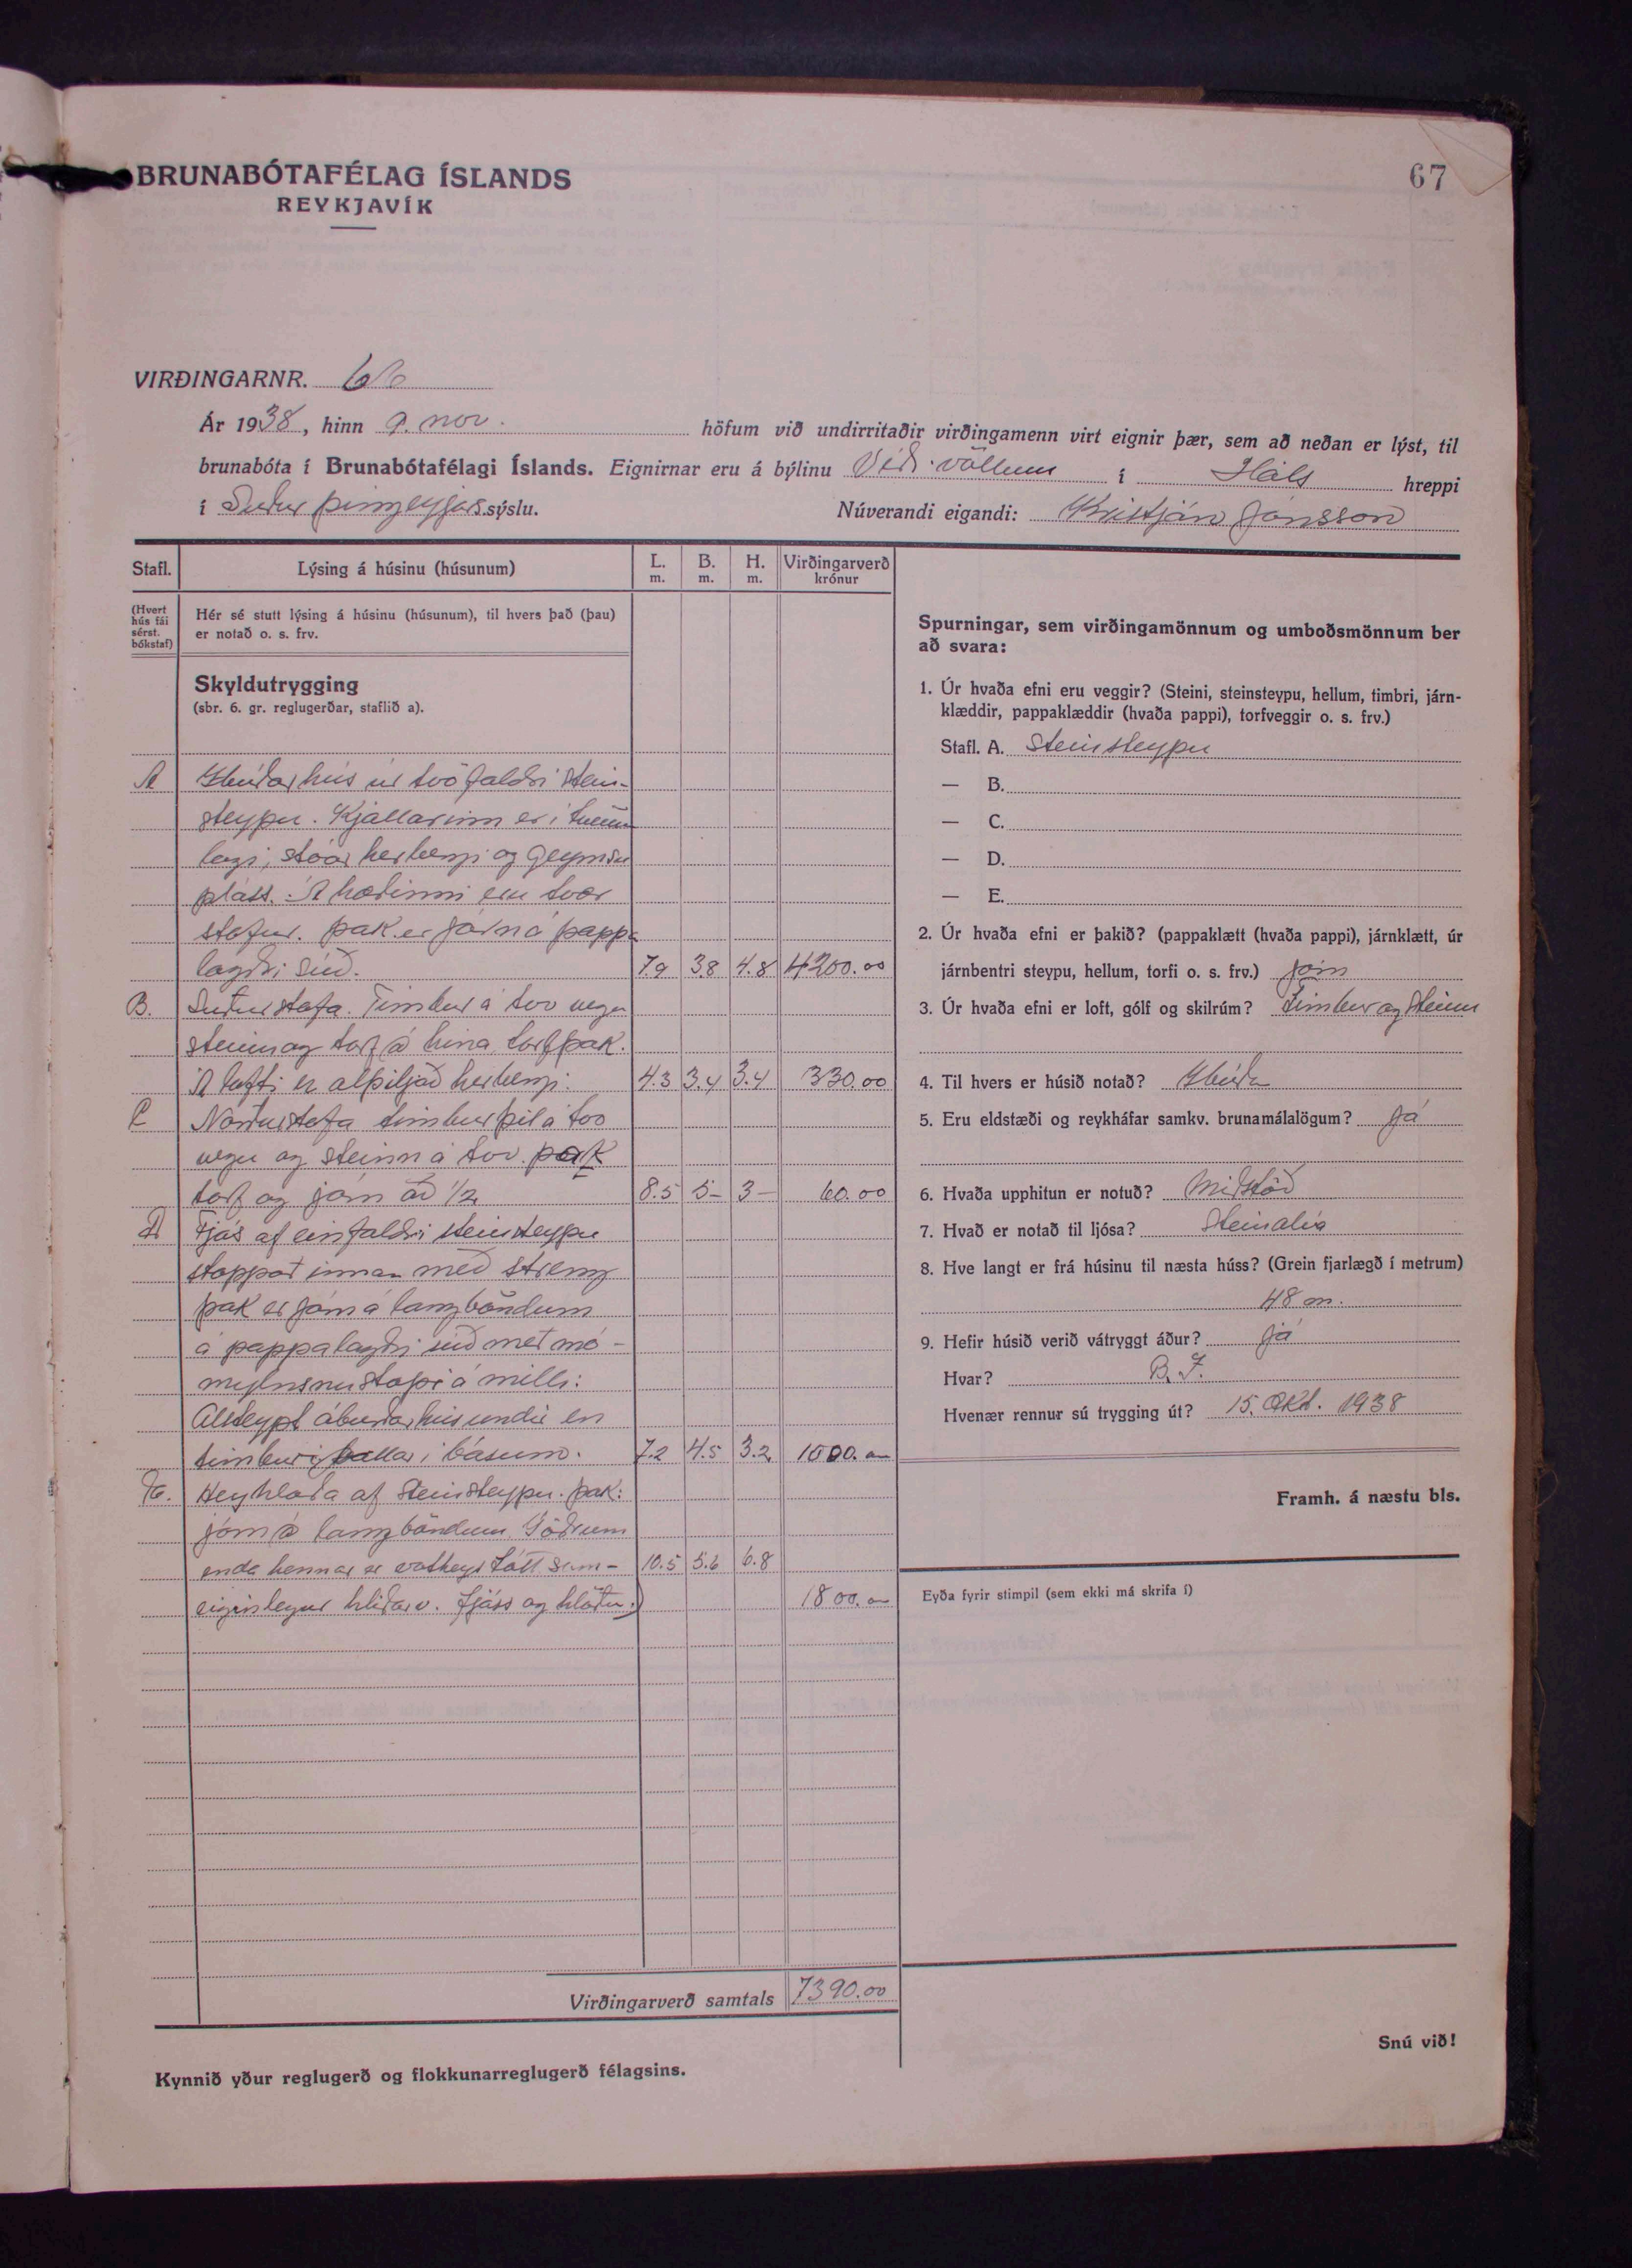 67
BRUNABÓTAFÉLAG ÍSLANDS
REYKJAVÍK
VIRÐINGARNR. 66
Ár 1938, hinn 9. nov. höfum við undirritaðir virðingamenn virt eignir þær, sem að neðan er lýst, til
brunabóta í Brunabótafélagi Íslands. Eignirnar eru á býlinu Víðivöllum í Háls hreppi
í Suður þingeyjarssýslu. Núverandi eigandi: Kristján Jónsson
Stafl. Lýsing á húsinu (húsunum) L. m. B. m. H. m. Virðingarverð krónur
(Hvert hús fái sérst. bókstaf)
Hér sé stutt lýsing á húsinu (húsunum), til hvers það (þau)
er notað o. s. frv.
Skyldutrygging
(sbr. 6. gr. reglugerðar, staflið a).
A Íbúðarhús úr tvöfaldri stein-
steypu. Kjallarinn er í tvennu
lagi, stóar herbergi og geymslu
pláss. Á hæðinni eru tvær
stofur. þak er járn á pappa
lagðri súð. 7.9 3.8 4.8 4200.00
B. Suðurstofa. Timbur á tvo vegu
steinn og torf á hina, torfþak.
Á lofti er alþiljað herbergi. 4.3 3.4 3.4 330.00
C Norðurstofa timburþil á tvo
vegu og steinn á tvo. þak
torf og járn að 1/2 8.5 5- 3- 60.00
D Fjós af einfaldri steinsteypu
stoppað innan með streng
þak er járn á langböndum
á pappalagðri súð með mó-
mylsnustoppi á milli:
Alsteypt áburðarhús undir en
timbur pallar í básum. 7.2 4.5 3.2 1000.00
E. Heyhlaða af steinsteypu. þak:
járn á langböndum Í öðrum
enda hennar er votheystótt sam- 10.5 5.6 6.8
eiginlegur hliðarv. fjóss og hlöðu.) 1800.00
Virðingarverð samtals 7390.00
Kynnið yður reglugerð og flokkunarreglugerð félagsins.
Spurningar, sem virðingamönnum og umboðsmönnum ber
að svara:
1. Úr hvaða efni eru veggir? (Steini, steinsteypu, hellum, timbri, járn-
klæddir, pappaklæddir (hvaða pappi), torfveggir o. s. frv.)
Stafl. A. Steinsteypu
— B.
— C.
— D.
— E.
2. Úr hvaða efni er þakið? (pappaklætt (hvaða pappi), járnklætt, úr
járnbentri steypu, hellum, torfi o. s. frv.) Járn
3. Úr hvaða efni er loft, gólf og skilrúm? Timbur og steinn
4. Til hvers er húsið notað? Íbúðar
5. Eru eldstæði og reykháfar samkv. brunamálalögum? Já
6. Hvaða upphitun er notuð? Miðstöð
7. Hvað er notað til ljósa? Steinolía
8. Hve langt er frá húsinu til næsta húss? (Grein fjarlægð í metrum)
48 m.
9. Hefir húsið verið vátryggt áður? Já
Hvar? B. Í.
Hvenær rennur sú trygging út? 15. okt. 1938
Framh. á næstu bls.
Eyða fyrir stimpil (sem ekki má skrifa í)
Snú við!